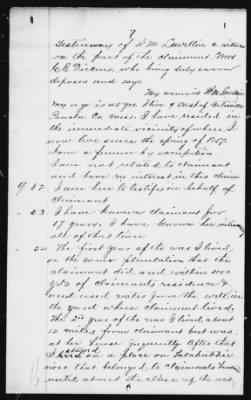 7
Testimony of W M Lewellin a witness
on the part of the claimant Mrs
E E Dickens, who being duly sworn
deposes and says
My name is Wm Lewellin
my age is 40 yrs. I live 9 east of
Panola Co. Miss. I have resided in
the immediate vicinity of where I
now live since the spring of 1857.
I am a farmer by vocation
I am not related to claimant
and have no interest in this claim
Q 52 I am here to testify in behalf of
claimant
53 I have known claimant for
17 years. I have known her
all of that time
The first year of the war I lived
on the same plantation that the
claimant did and within 100
yds of claimants residence &
and used water from the well in
the yard where claimant lived.
The 2nd year of the war I lived about
12 miles from claimant but was
at her house frequently After that
I stayed on a place on Talahatchie
river that belonged to claimants
until about the close of the war